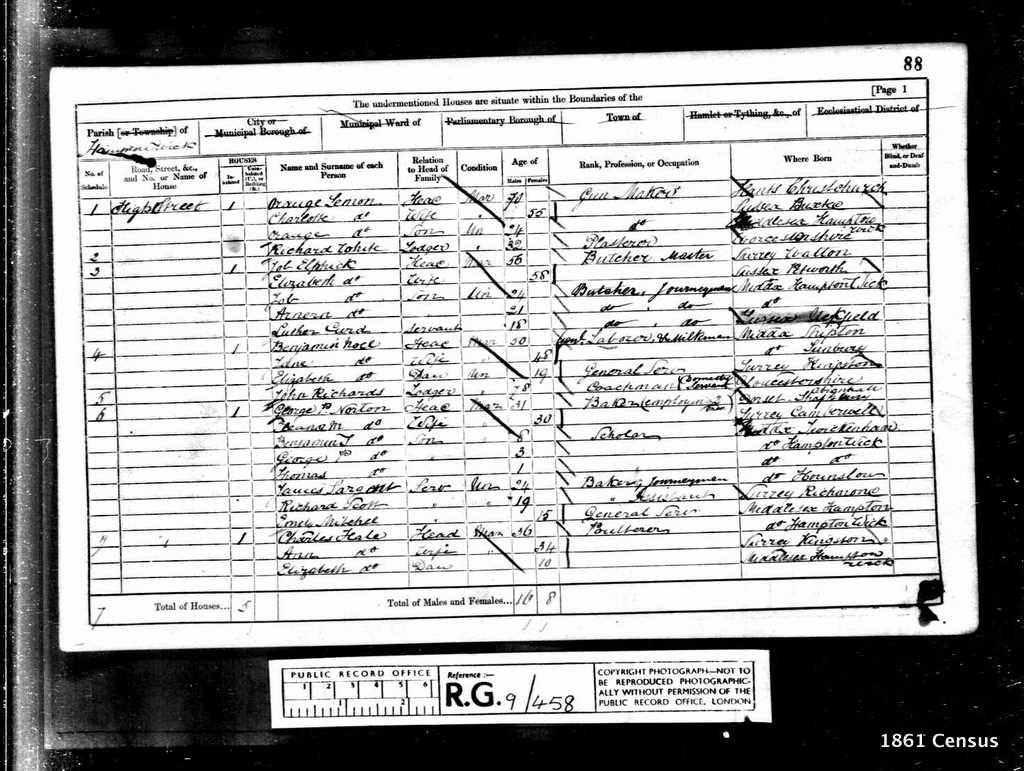 88
[Page 1
The undermentioned Houses are situate within the Boundaries of the
Parish [or Township] of
City or Municipal Borough of
Municipal Ward of
Parliamentary Borough of
Town of
Hamlet or Tything, &c., of
Ecclesiastical District of
Hampton Wick
No. of Schedule
Road, Street, &c., and No. or Name of House
HOUSES
Name and Surname of each Person
Relation to Head of Family
Condition
Age of
Males Females
Rank, Profession, or Occupation
Where Born
Whether Blind, or Deaf-and-Dumb
1 High Street 1 Orange Head Mar 70 Gun Maker Hants Christchurch
Charlotte do Wife 55 Sussex
Orange do Son Un 24 do Middlesex Hampton Wick
2 Richard White Lodger 32 Plasterer Worcestershire
3 1 Job Elphick Head Mar 56 Butcher Master Surrey Walton
Elizabeth do Wife 58 Sussex Petworth
Job do Son Un 24 Butcher, Journeyman Middx Hampton Wick
do 21 do do do
Luther Servant 18 do do Sussex Uckfield
4 1 Benjamin Head Mar 50 Laborer, & Milkman Middx
do Wife 48 do Sunbury
Elizabeth do Dau Un 19 General Serv Surrey Kingston
5 John Richards Lodger 78 Coachman (Domestic Servant Gloucestershire
6 1 George P. Norton Head Mar 31 Baker (employing 2 Dorset
M do Wife 30 Surrey Camberwell
Benjamin T do Son Scholar Middx Twickenham
George P do 3 do Hampton Wick
Thomas do 1 do do
James Sargent Serv Un 24 Baker, Journeyman do Hounslow
Richard Scott 19 " Assistant Surrey Richmond
Emily Mitchel 15 General Serv Middlesex Hampton
7 " 1 Charles Hale Head Mar 36 do Hampton Wick
Ann do Wife 34 Surrey Kingston
Elizabeth do Dau 10 Middlesex Hampton Wick
7 Total of Houses... 5 Total of Males and Females... 16 8
PUBLIC RECORD OFFICE
1 2 3 4 5 6
1 2
Reference :—
R.G. 9/458
COPYRIGHT PHOTOGRAPH—NOT TO
BE REPRODUCED PHOTOGRAPHIC-
ALLY WITHOUT PERMISSION OF THE
PUBLIC RECORD OFFICE, LONDON
1861 Census